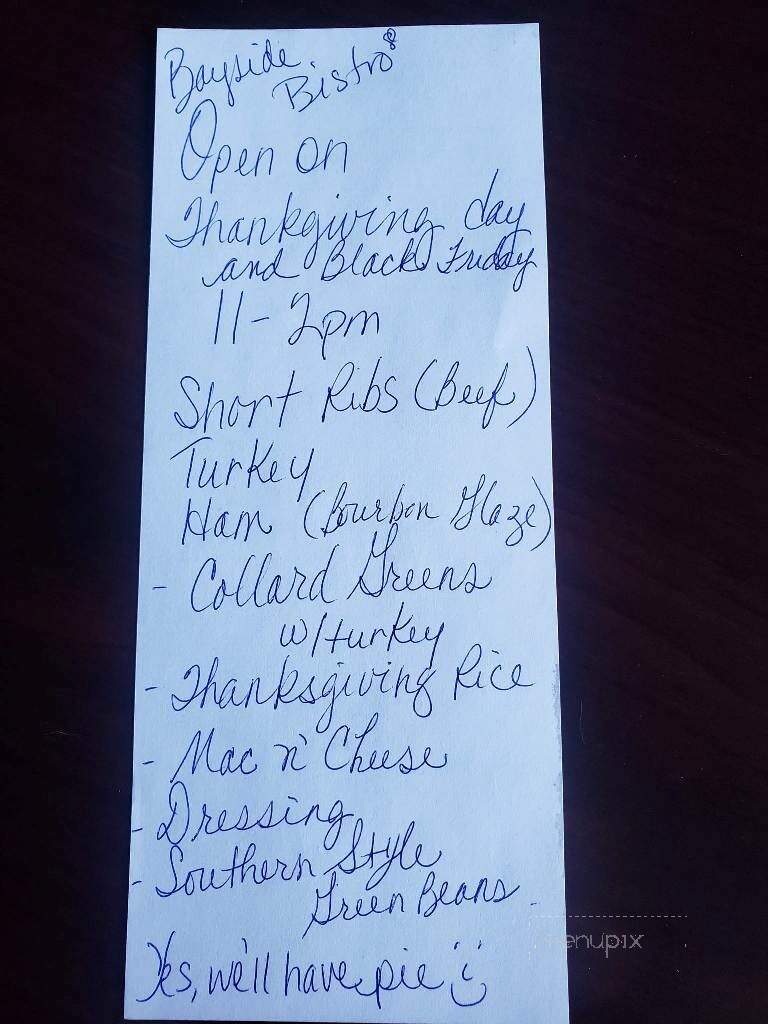 Bayside
Bistro
Open on
Thankgiving day
and Black Friday
11-2pm
Short Ribs (Beef)
Turkey
Ham (Bourbon Glaze)
- Collard Greens
w/turkey
- Thanksgiving Rice
- Mac n' Cheese
- Dressing
- Southern Style
Green Beans
menupix
Yes, we'll have pie